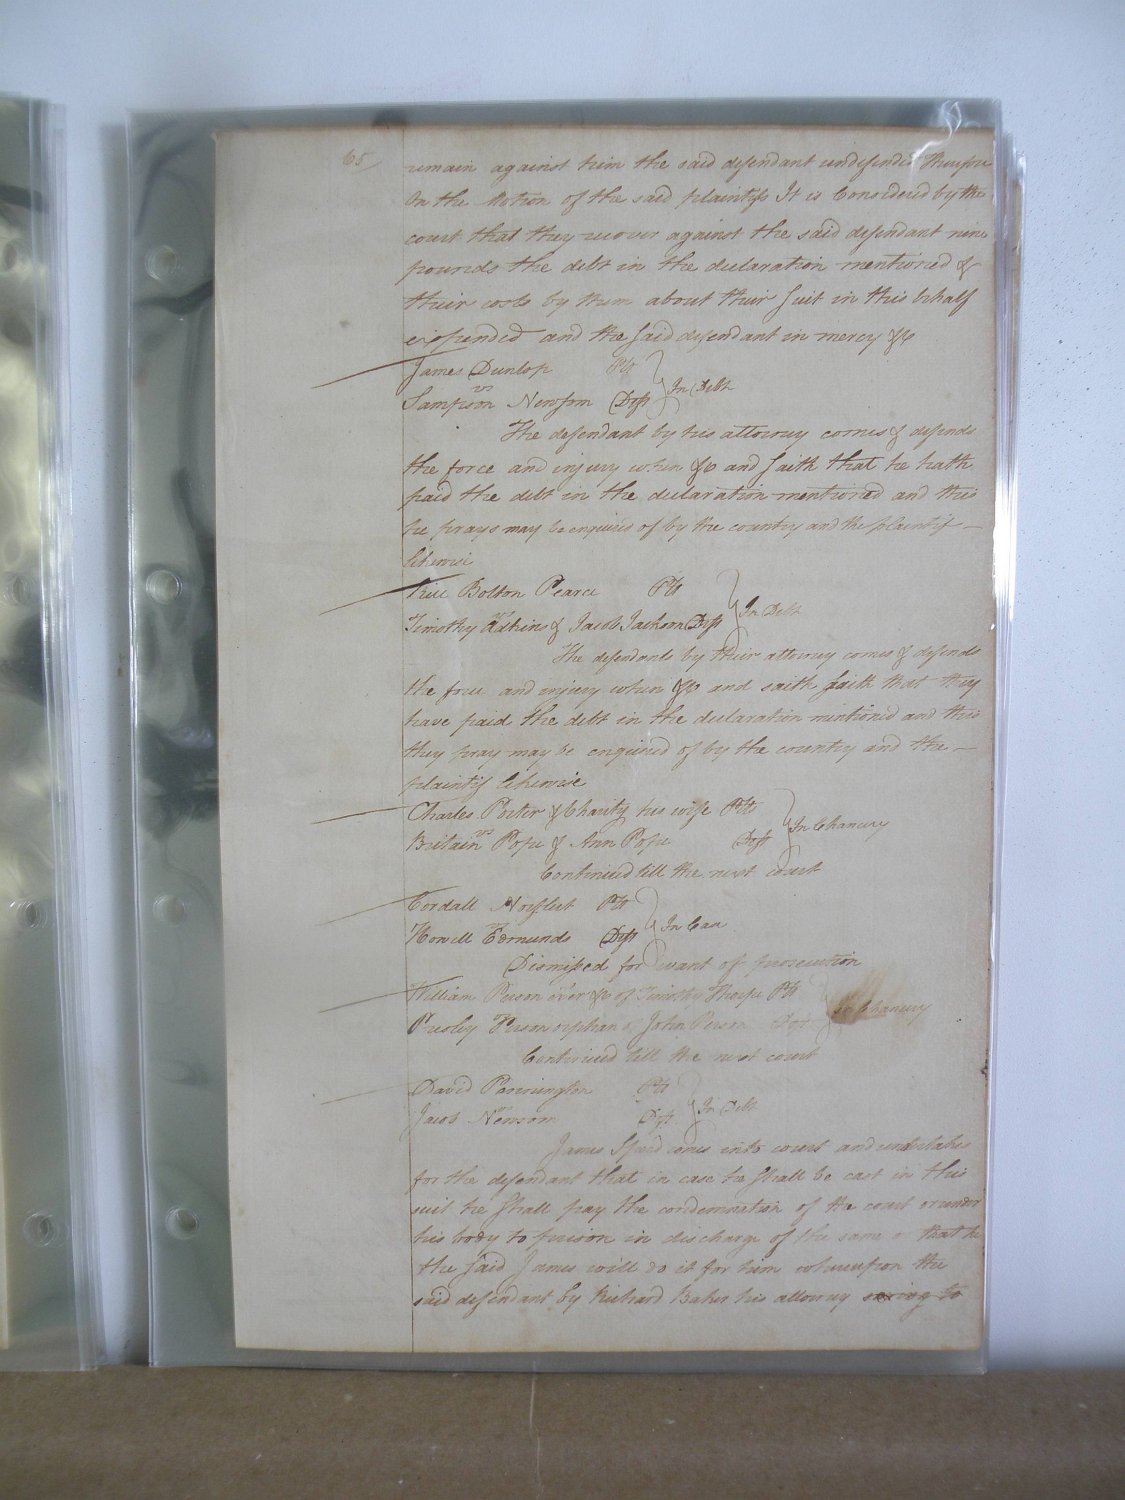 65
remain against him the said defendant undefended therefore
On the Motion of the said plaintifs It is Considered by the
court that they recover against the said defendant nine
pounds the debt in the declaration mentioned &
their costs by them about their suit in this behalf
expended and the said defendant in mercy &c
James Dunlop Plt
vs In Debt
Sampson Newsom Deft
The defendant by his attorney comes & defends
the force and injury when &c and saith that he hath
paid the debt in the declaration mentioned and this
he prays may be enquired of by the country and the plaintif
likewise
Bolton Pearce Plt
vs In Debt
Timothy Adkins & Jacob Jackson Deft
The defendants by their attorney comes & defends
the force and injury when &c and saith saith that they
have paid the debt in the declaration mentioned and this
they pray may be enquired of by the country and the
plaintif likewise
Charles Porter & Charity his wife Plt
vs In Chancery
Britain Pope & Ann Pope Deft
Continued till the next court
Cordall Norfleet Plt
vs In Case
Howell Edmunds Deft
Dismissed for want of prosecution
William Person &c of Timothy Thorpe Plt
In Chancery
Presley Person orphan of John Person Deft
Continued till the next court
David Pannington Plt
vs In Debt
Jacob Newsom Deft
James Speed comes into court and undertakes
for the defendant that in case he shall be cast in this
suit he shall pay the condemnation of the court or render
his body to prison in discharge of the same or that he
the said James will do it for him whereupon the
said defendant by Richard Baker his attorney saving to